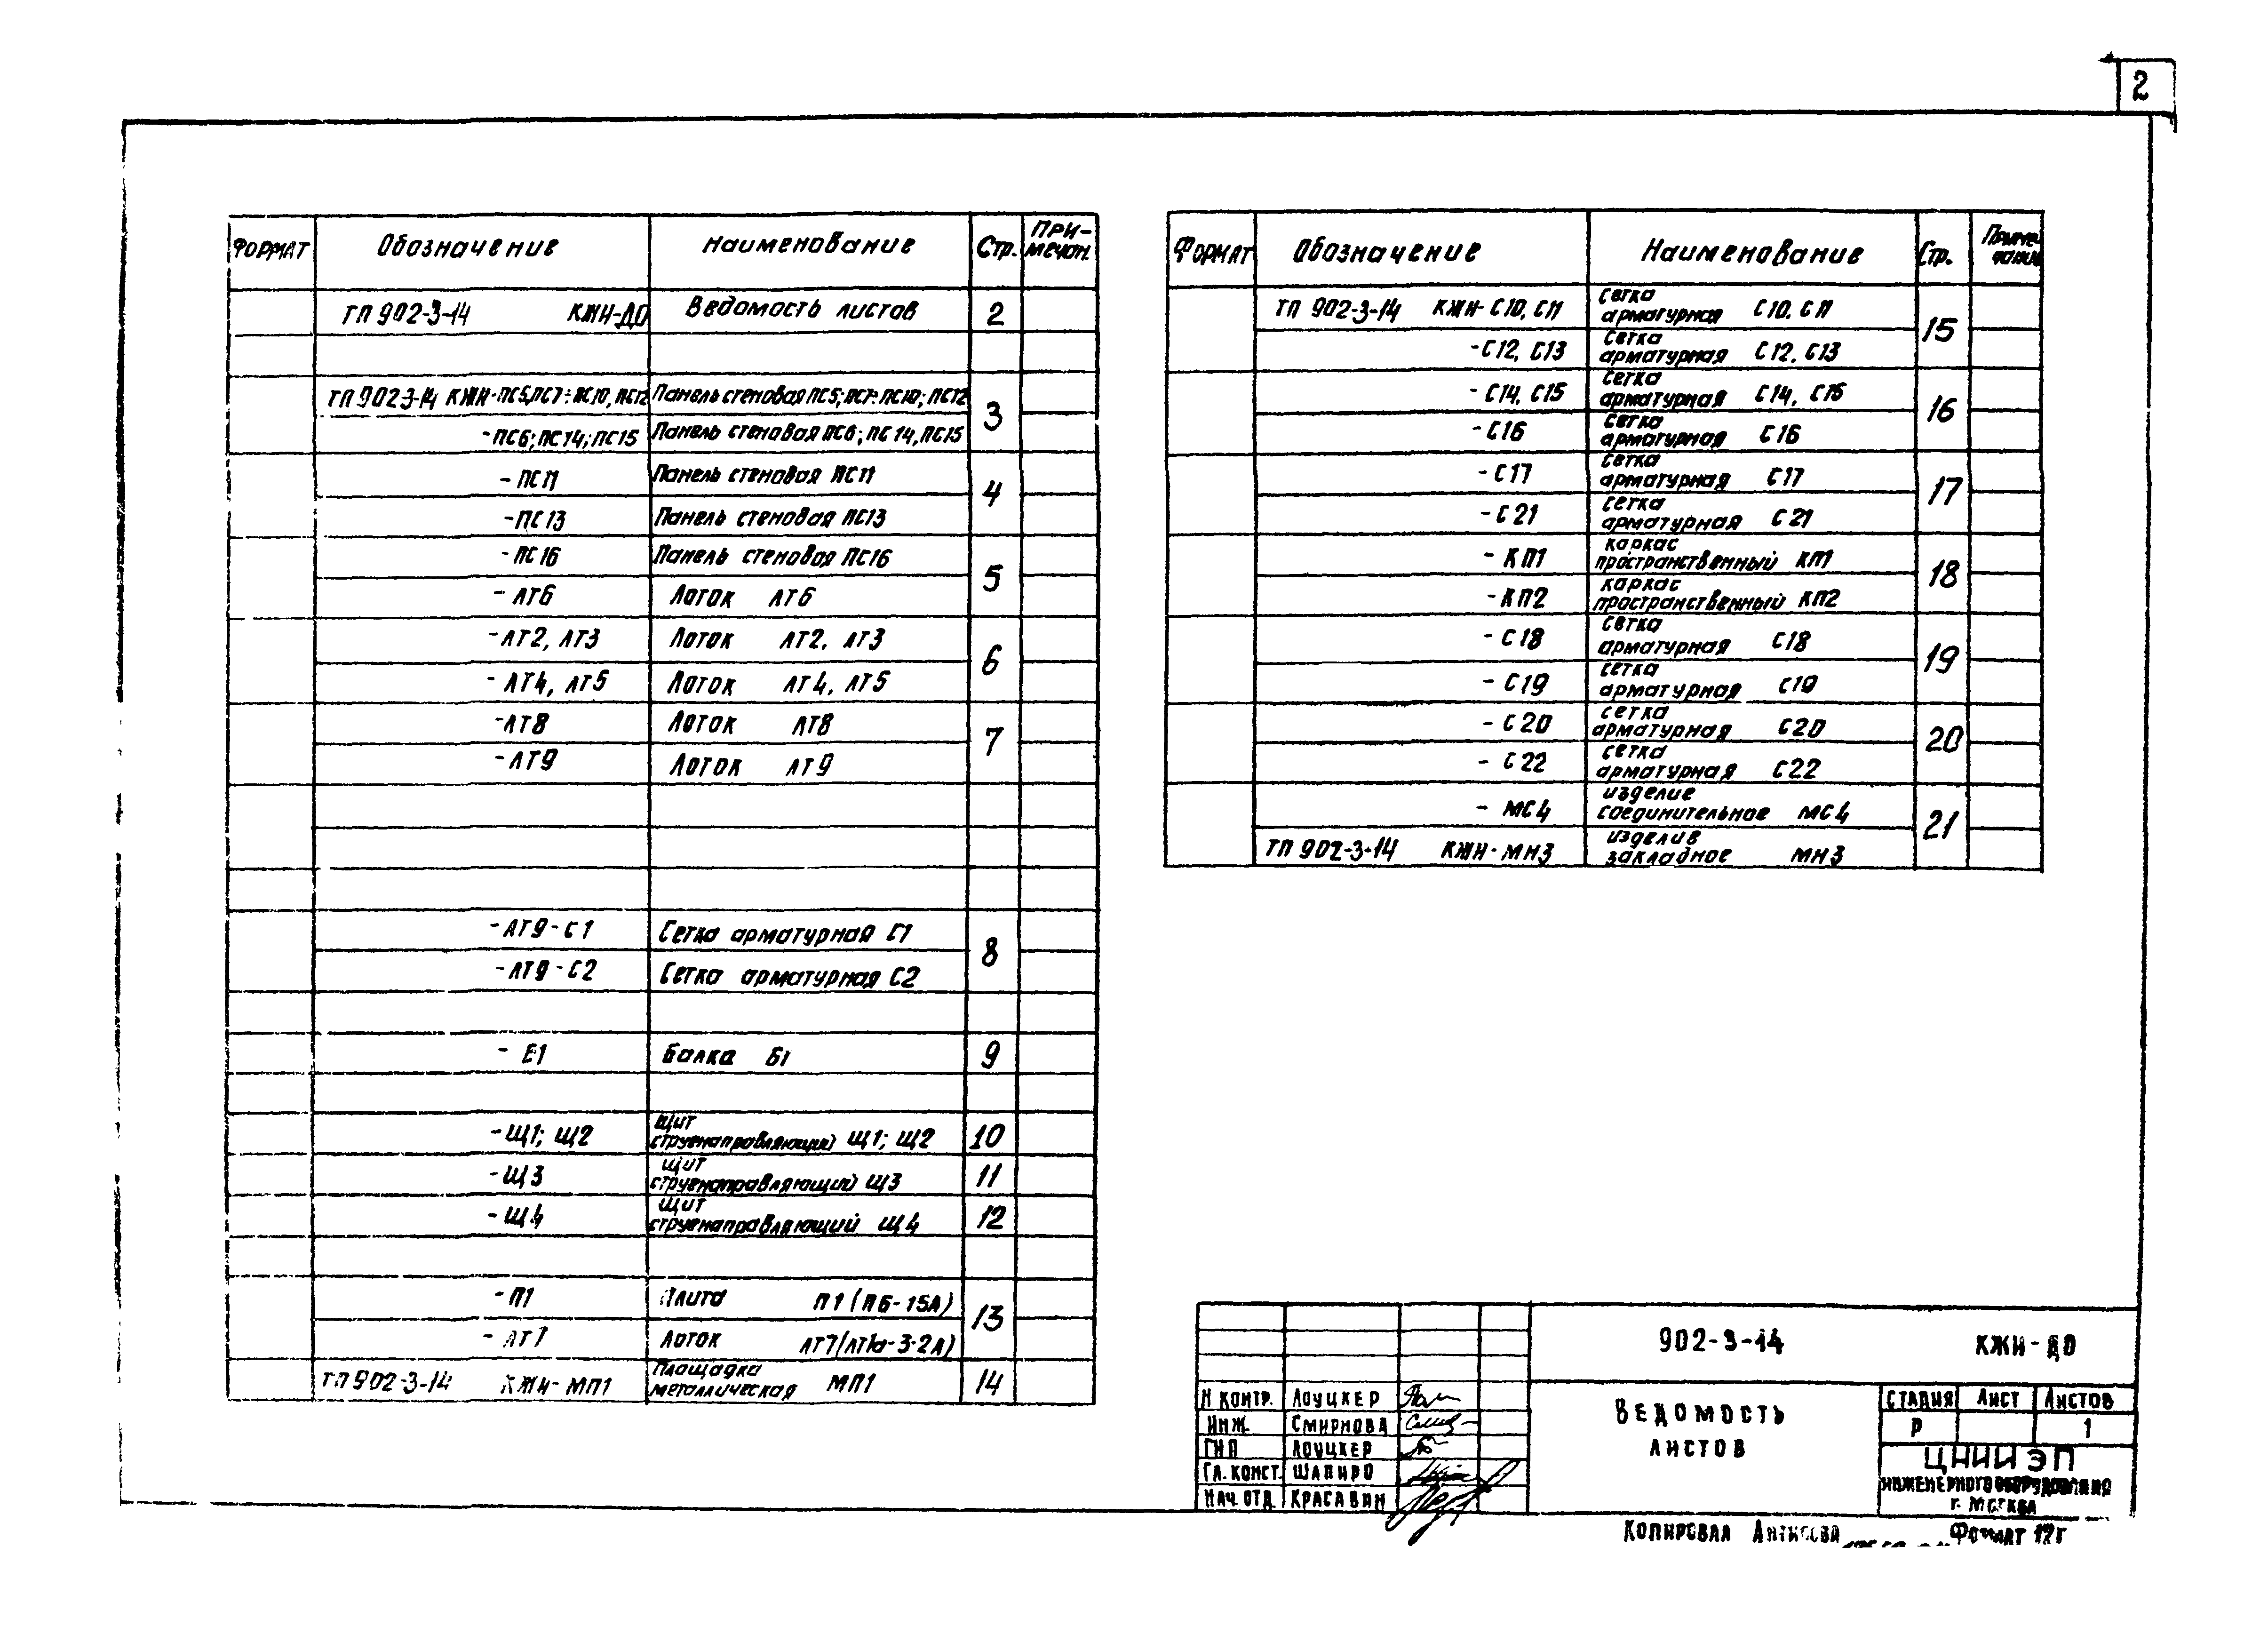 2
ФОРМАТ Обозначение Наименование Стр. ПРИ-
мечан.
ТП 902-3-14 КЖИ-ДО Ведомость листов 2
ТП 902-3-14 КЖИ-ПС5,ПС7÷ПС10,ПС12 Панель стеновая ПС5; ПС7÷ПС10; ПС12 3
-ПС6; ПС14; ПС15 Панель стеновая ПС6; ПС14, ПС15
-ПС11 Панель стеновая ПС11 4
-ПС13 Панель стеновая ПС13
-ПС16 Панель стеновая ПС16 5
-ЛТ6 Лоток ЛТ6
-ЛТ2, ЛТ3 Лоток ЛТ2, ЛТ3 6
-ЛТ4, ЛТ5 Лоток ЛТ4, ЛТ5
-ЛТ8 Лоток ЛТ8 7
-ЛТ9 Лоток ЛТ9
-ЛТ9-С1 Сетка арматурная С1 8
-ЛТ9-С2 Сетка арматурная С2
-Б1 Балка Б1 9
-Щ1; Щ2 Щит
струенаправляющий Щ1; Щ2 10
-Щ3 Щит
струенаправляющий Щ3 11
-Щ4 Щит
струенаправляющий Щ4 12
-П1 Плита П1 (П6-15А) 13
-ЛТ7 Лоток
ТП 902-3-14 КЖИ-МП1 Площадка
металлическая МП1 14
ФОРМАТ Обозначение Наименование Стр. Приме-
чание
ТП 902-3-14 КЖИ-С10, С11 Сетка
арматурная С10, С11 15
-С12, С13 Сетка
арматурная С12, С13
-С14, С15 Сетка
арматурная С14, С15 16
-С16 Сетка
арматурная С16
-С17 Сетка
арматурная С17 17
-С21 Сетка
арматурная С21
-КП1 каркас
пространственный КП1 18
-КП2 каркас
пространственный КП2
-С18 Сетка
арматурная С18 19
-С19 Сетка
арматурная С19
-С20 сетка
арматурная С20 20
-С22 сетка
арматурная С22
-МС4 изделие
соединительное МС4 21
ТП 902-3-14 КЖИ-МН3 изделие
закладное МН3
902-3-14 КЖИ-ДО
Н КОНТР. ЛОУЦКЕР
ИНЖ. СМИРНОВА
ГИП ЛОУЦКЕР
ГЛ. КОНСТ. ШАПИРО
НАЧ. ОТД КРАСАВИН
ВЕДОМОСТЬ
ЛИСТОВ
СТАДИЯ ЛИСТ ЛИСТОВ
Р 1
ЦНИИЭП
ИНЖЕНЕРНОГО ОБОРУДОВАНИЯ
г. МОСКВА
КОПИРОВАЛ ФОРМАТ 12Г